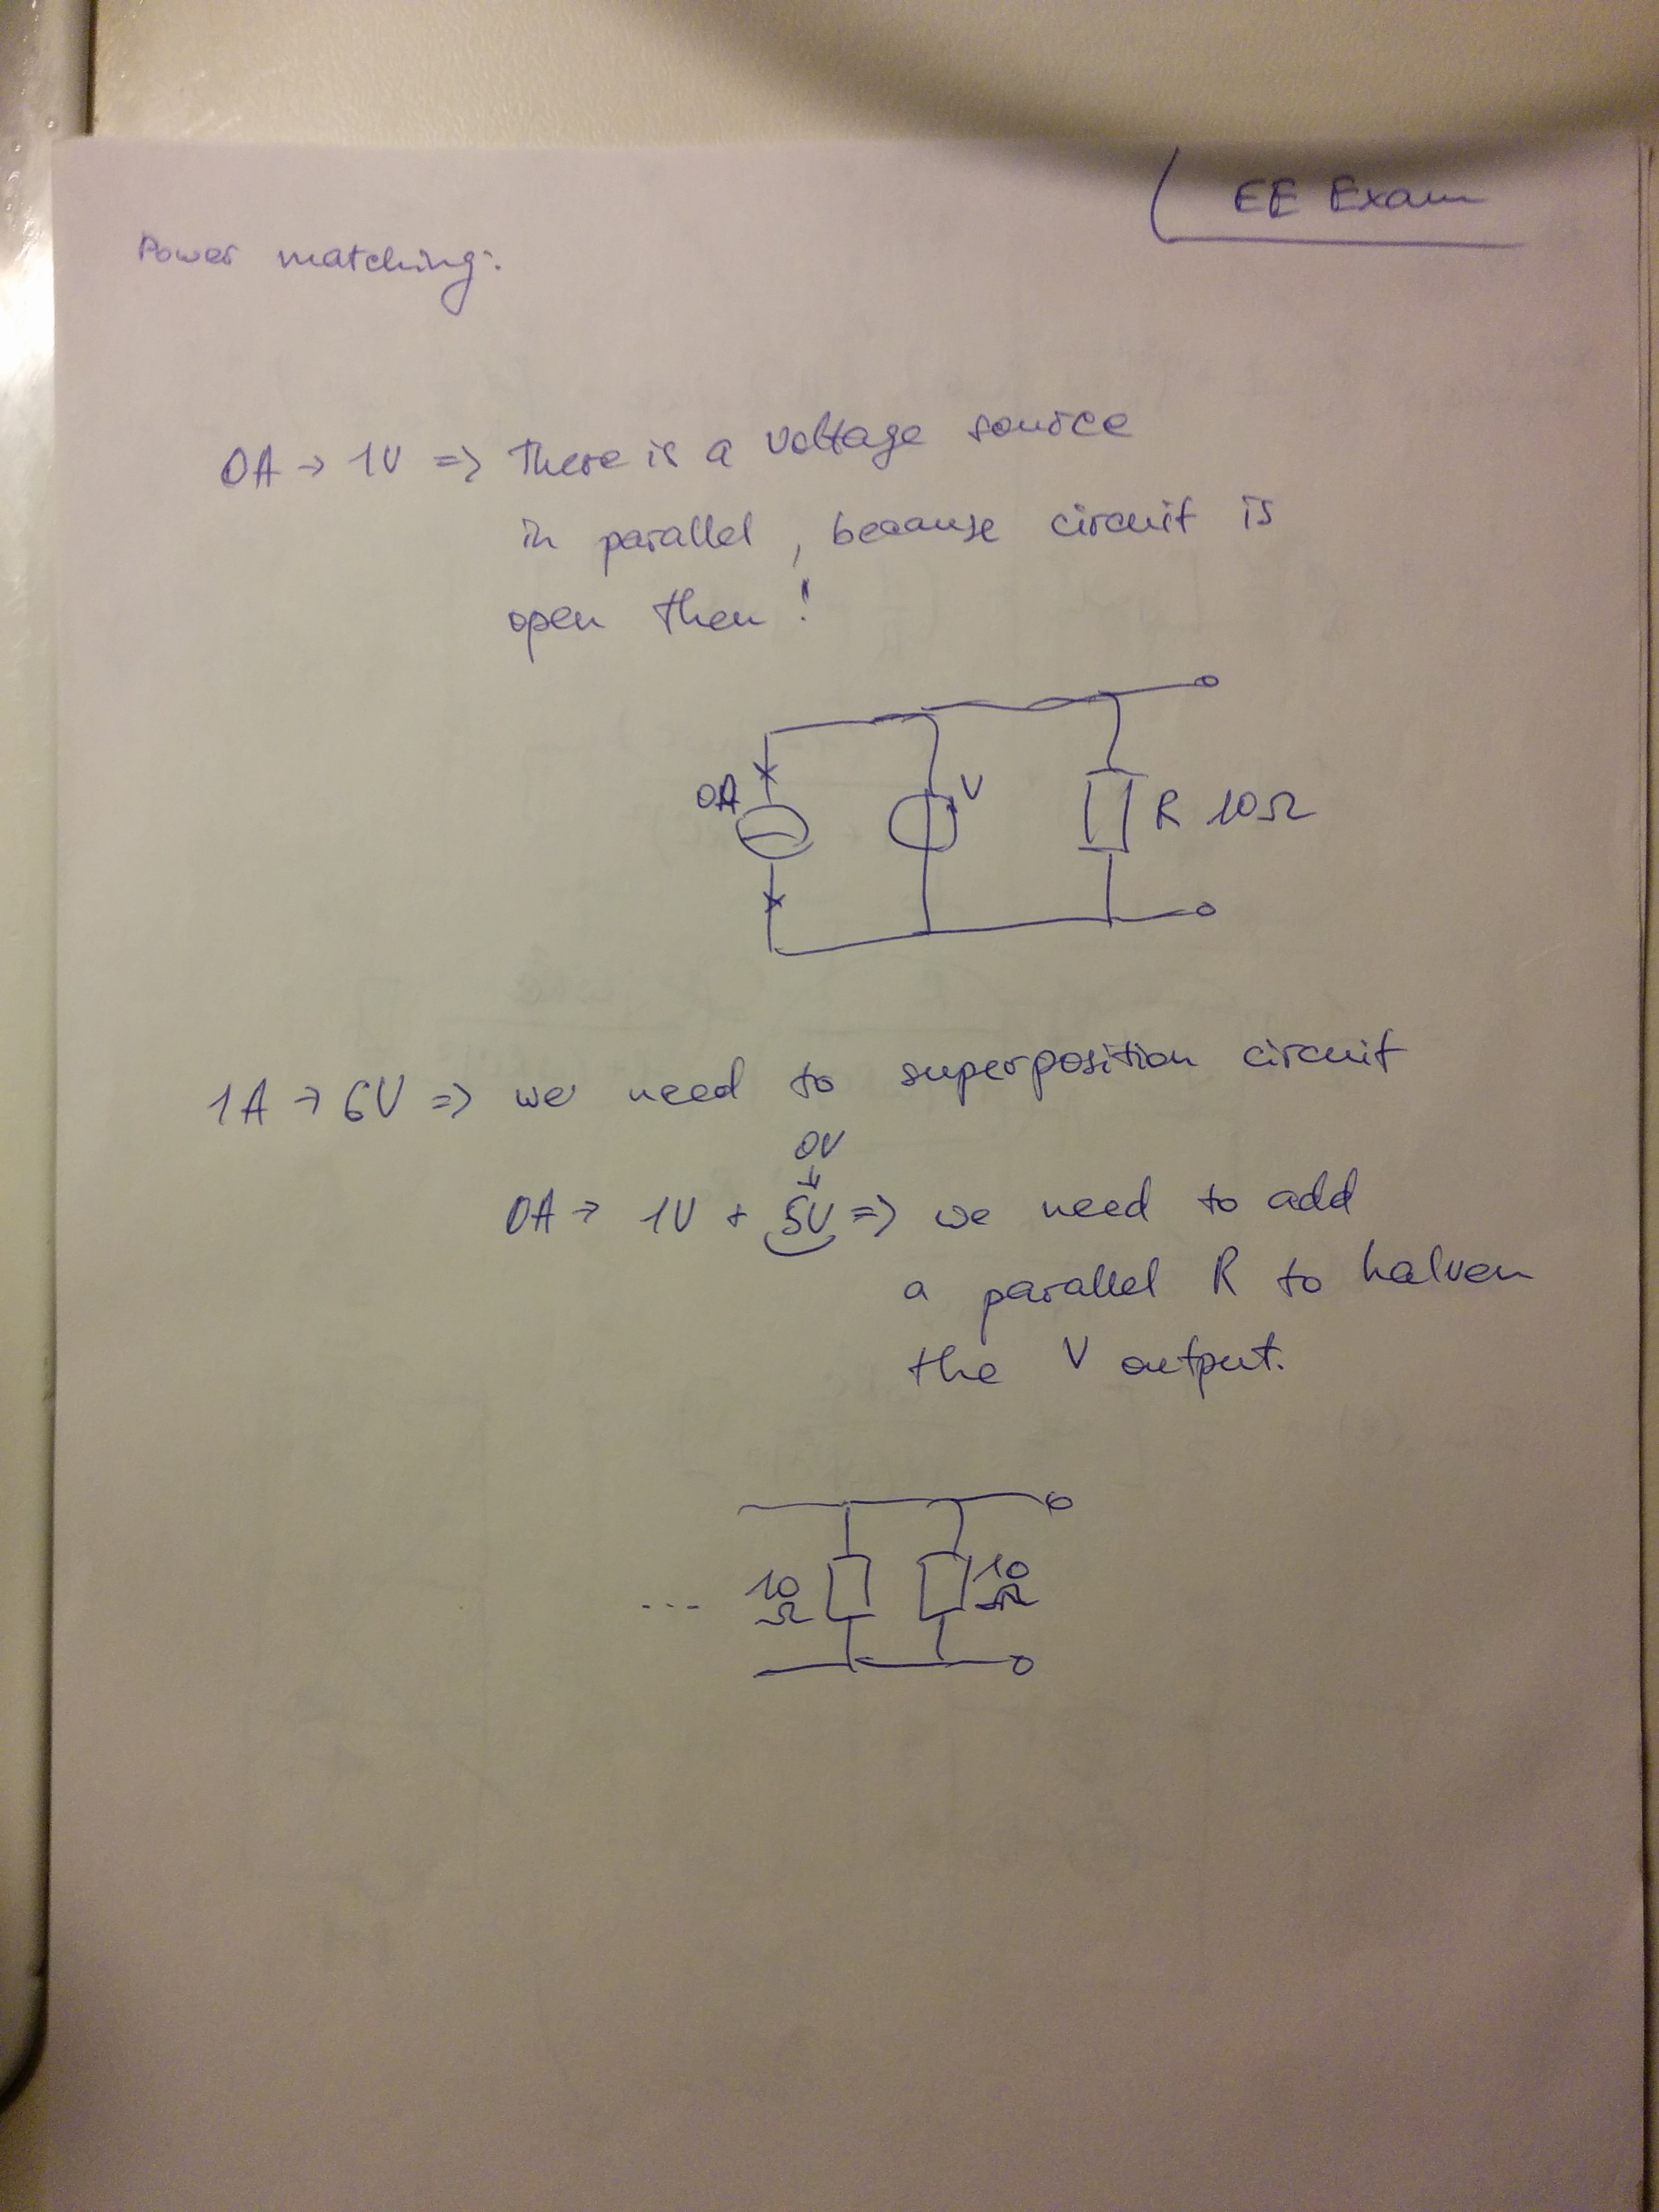 EE Exam
Power matching:
0A → 1V => There is a voltage source
in parallel, because circuit is
open then!
0A
V
R 10Ω
1A → 6V => we need to superposition circuit
0V
↓
0A → 1V + 5V => we need to add
a parallel R to halven
the V output.
... 10 Ω 10 Ω